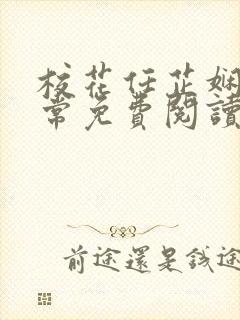 校花任芷娴
常免費閱讀
前途還是錢途